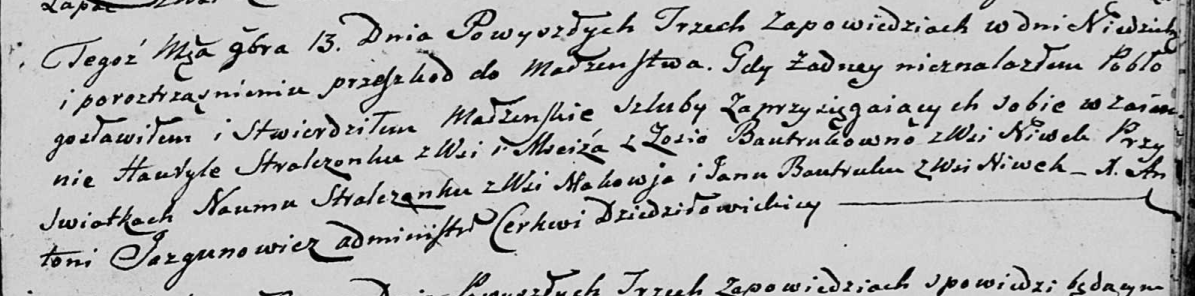 Tegoż Mca 9bra 13. Dnia Powyszłych Trzech Zapowiedziach w dni Niedziel
i poroztrząśnieniu przeszkod do Małżenstwa. Gdy żadney nieznalazłem Pobło
gosławiłem i Stwierdziłem Małżenskie szluby Zaprzysięgaiących sobie wzaiem
nie Hauryle Stralczonku z Wsi Mściża z Zosią Bautrukowną z Wsi Niwek Przy
Swiatkach Naumu Stralczonku z Wsi Makowja i Janu Bautruku z Wsi Niwek – X. An
toni Jazgunowicz administr Cerkwi Dziedziłowickiey
Trzech Zapowiedziach spowiedzi będącym